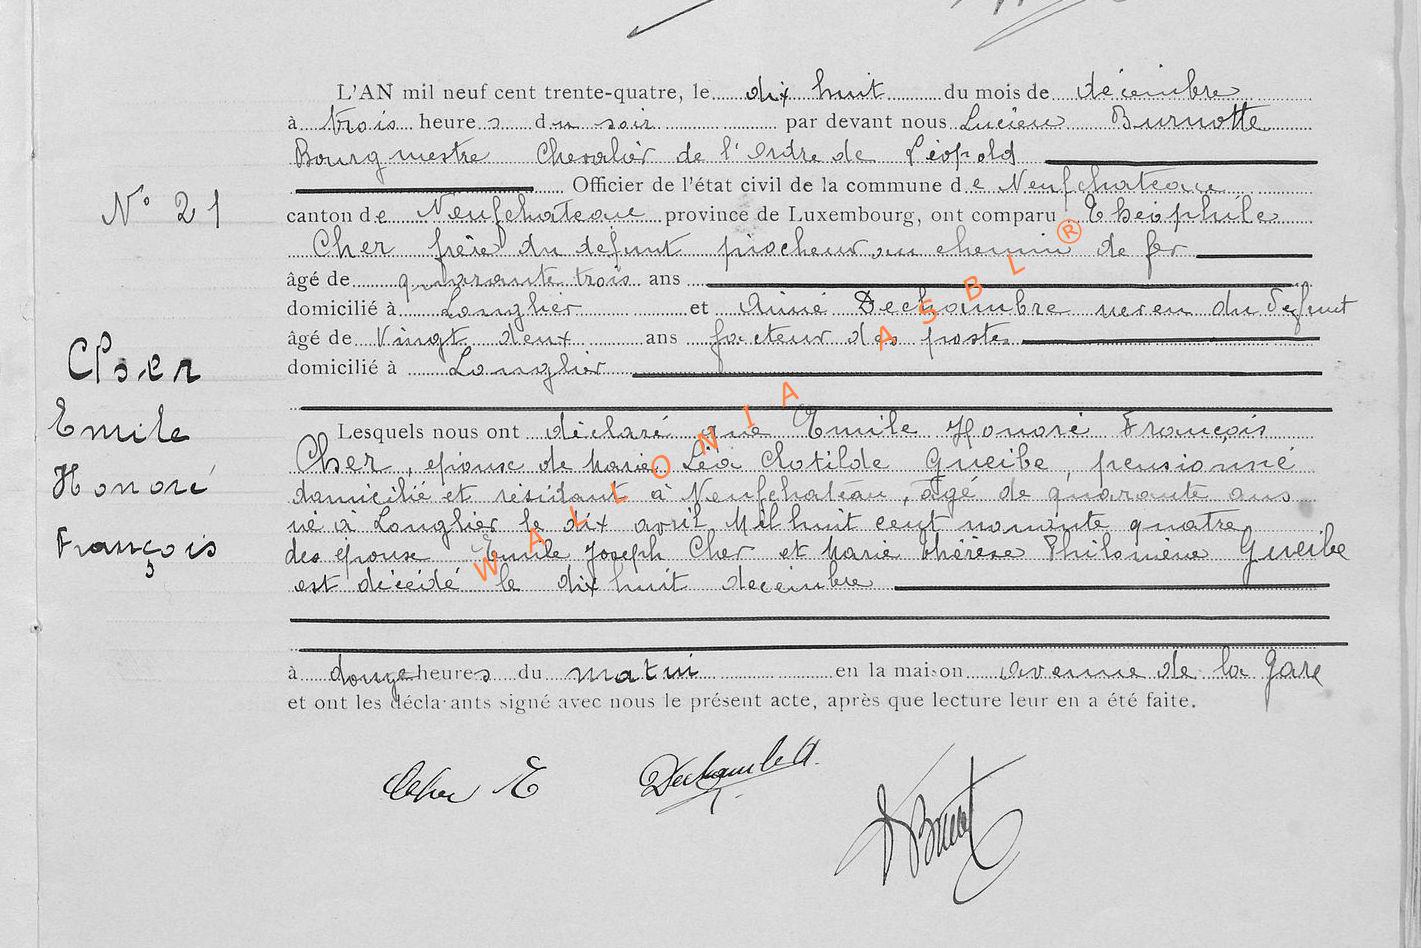 L'AN mil neuf cent trente-quatre, le dix huit du mois de décembre
à trois heures du soir par devant nous Lucien Burnotte
Bourgmestre Chevalier de l'Ordre de Léopold
Officier de l'état civil de la commune de Neufchateau
N° 21
canton de Neufchateau province de Luxembourg, ont comparu Théophile
Cher frère du défunt piocheur au chemin de fer
âgé de quarante trois ans
domicilié à Longlier et Aimé Dechambre neveu du défunt
âgé de Vingt deux ans facteur des postes
domicilié à Longlier
Cher
Emile
Honoré
François
Lesquels nous ont déclaré que Emile Honoré François
Cher, epoux de Marie Léa Clotilde Gueibe, pensionné
domicilié et résidant à Neufchateau, âgé de quarante ans
né à Longlier le dix avril Mil huit cent nonante quatre
des epoux Emile Joseph Cher et Marie Thérèse Philomène Gueibe
est décédé le dix huit decembre
à douze heures du matin en la maison avenue de la Gare
et ont les déclarants signé avec nous le présent acte, après que lecture leur en a été faite.
Cher
WALLONIA ASBL ®